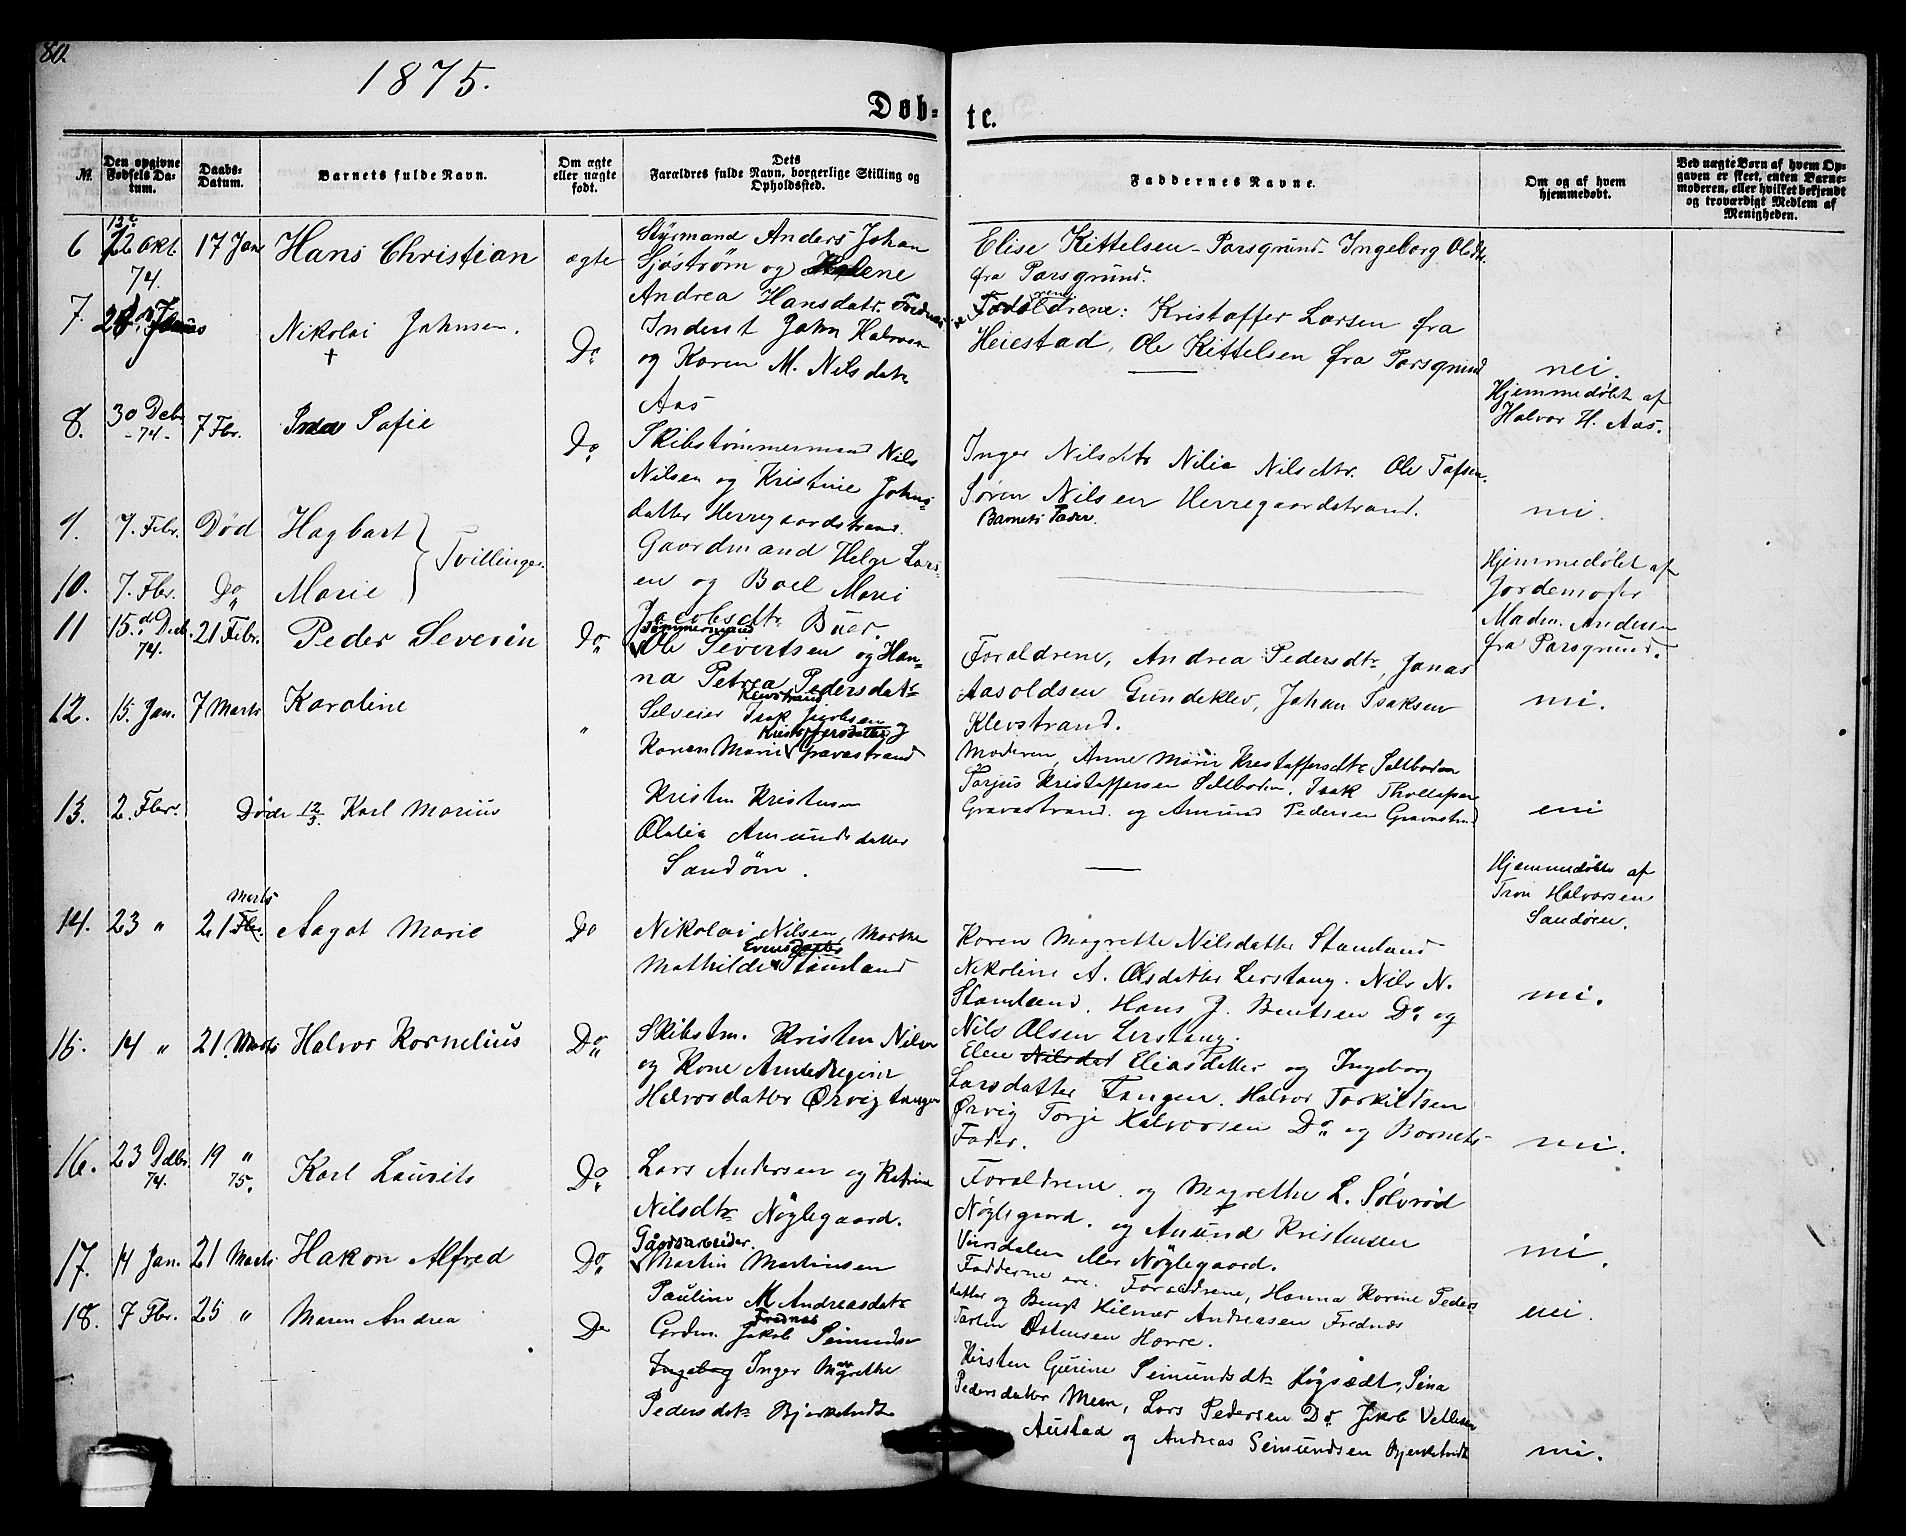 80.
1875.
Døb-
te.
№
Den opgivne Fødsels Datum.
Daabs-Datum.
Barnets fulde Navn.
Om ægte eller uægte født.
Dets Forældres fulde Navn, borgerlige Stilling og Opholdssted.
Faddernes Navne.
Om og af hvem hjemmedøbt.
Ved uægte Børn af hvem Opgaven er skeet, enten Barnemoderen, eller hvilket bekjendt og troværdigt Medlem af Menigheden.
6 Okt. 74. 17 Jan Hans Christian ægte
Styrmand Anders Johan
Sjøstrøm og Helene
Andrea Hansdatr. Frednæs
Elise Kittelsen - Porsgrund - Ingeborg Olsdtr.
fra Porsgrund.
7. Nikolai Johnsen. Do
+
Inderst John Halvorsen
og Karen M. Nilsdatr
Aas
Kristoffer Larsen fra
Heiestad, Ole Kittelsen fra Porsgrund
nei.
Hjemmedøbt af
Halvor H. Aas.
8. 30 Debr -74- 7 Fbr. Sofie Do
Skibstømmermand Nils
Nilsen og Kristine Johns-
datter Herregaardstrand.
Inger Nilsdtr Nilia Nilsdtr. Ole
Søren Nilsen Herregaardstrand.
Barnets Fader.
nei.
9. 7. Febr. Død Hagbart
Tvillinger.
10. 7. Fbr. Do Marie
Gaardmand Helge Lars-
en og Boel Mari
Jacobsdtr. Buer.
Hjemmedøbt af
Jordemoder
Madm. Andersen
fra Porsgrund.
11 15. Decb. 74. 21 Febr. Peder Severin Do
Tømmermand
Ole Sivertsen og Han-
na Petrea Pedersdatr
Klevstrand
Foraldrene, Andrea Pedersdtr, Jonas
Aasoldsen Gundeklev, Johan Isaksen
Klevstrand.
nei.
12. 15. Jan. 7 Marts Karoline "
Selveier Isak Jacobsen og
Kristoffersdatter
Karen Marie Gravastrand
Moderen, Anne Marie Kristoffersdtr Saltboden
Torjus Kristoffersen Saltboden, Isak Thollefsen
Gravastrand. og Amund Pedersen Gravastrand
nei
13. 2. Fbr. Døde 12/3. Karl Marius
Kristen Kristensen
Olalia Amundsdatter
Sandøen.
Hjemmedøbt af
Tron Halvorsen
Sandøen.
14. 23 " 21 Marts Aagot Marie Do
Nikolai Nilsen, Marthe
Evensdatter
Mathilde Stamland
Karen Magrette Nilsdatter Stamland
Nikoline A. Olsdatter Lerstang. Nils N.
Stamland. Hans J. Bentsen Do. og
Nils Olsen Lerstang.
nei.
15. 14 " 21. Marts Halvor Kornelius Do
Skibstm. Kristen Nilsen
og Kone
Halvorsdatter Ørvigtangen
Elen Nilsdat Eliasdatter og Ingeborg
Larsdatter Tangen. Halvor Torkildsen
Ørvig Torje Halvorsen Do. og Barnets
Fader.
nei.
16. 23 Ddbr. 74. 19 " 75. Karl Laurits Do
Lars Andersen og Katrine
Nilsdtr Nøglegaard.
Foraldrene og Magrethe L. Solvrød
Nøglegaard. og Amund Kristensen
Nøglegaard.
nei.
17. 14 Jan. 21 Marts Hakon Alfred Do
Gaardsarbeider.
Martin Martinsen
Pauline M. Andreasdatr
Frednæs
Fadderne ere. Foraldrene, Hanna Karine Peders-
datter og Bengt Hilmer Andreasen Frednæs
Ostensen Hærre.
nei.
18. 7 Fbr. 25 " Maren Andrea Do
Gardm. Jakob Seimundsen
Ingebog Inger Margrethe
Pedersdatr Bjerketvedt
Kirsten Gurine Seimundsdtr Høgsædt, Sina
Pedersdatter Mæen, Lars Pedersen Do. Jakob Vetlesen
Austad og Andreas Seimundsen Bjerketvedt
nei.